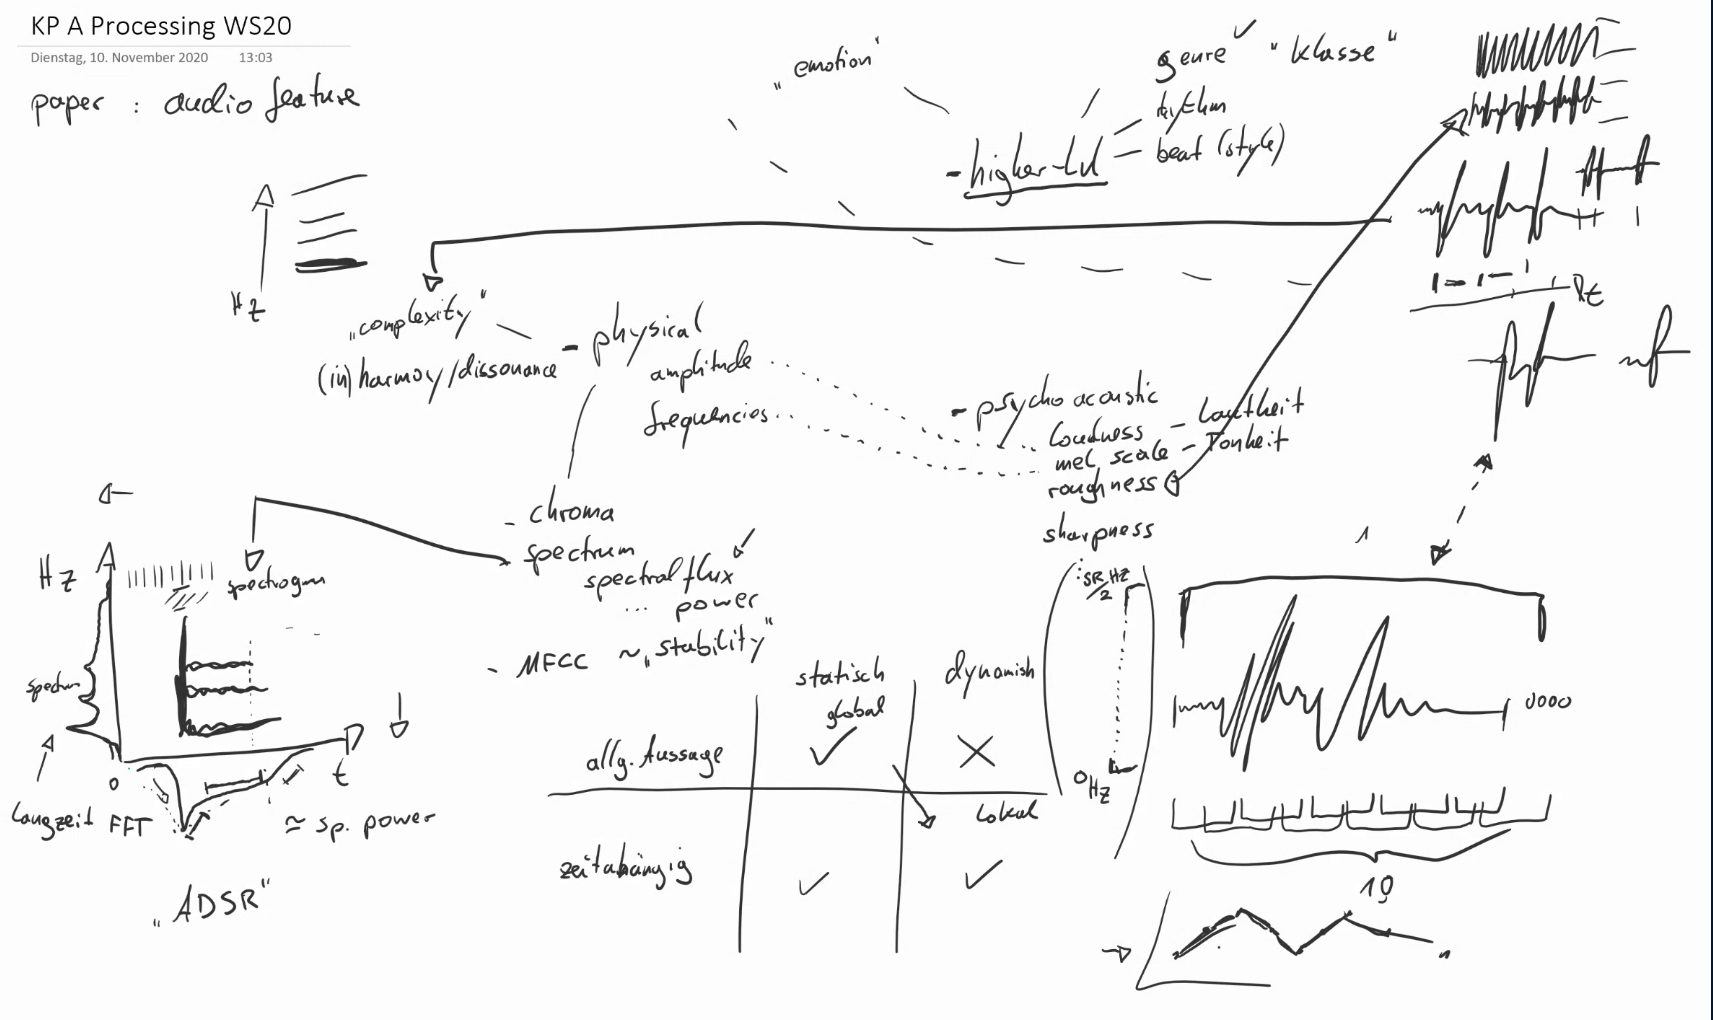 KP A Processing WS20
Dienstag, 10. November 2020 13:03
paper : audio feature
„emotion"
genre "klasse"
rythm
- higher-lvl
beat (style)
Hz
„complexity"
- physical
(in) harmoy/dissonance
amplitude
frequencies
- psycho acoustic
loudness - Lautheit
mel scale - Tonheit
roughness
sharpness
- chroma
spectrum
spectral flux
... power
- MFCC ~ „stability"
Hz
spectrogram
spectrum
0
t
Langzeit FFT
≈ sp. power
„ADSR"
statisch
global
dynamish
allg. Aussage
lokal
zeitabhängig
SR/2 Hz
0 Hz
1
0000
19